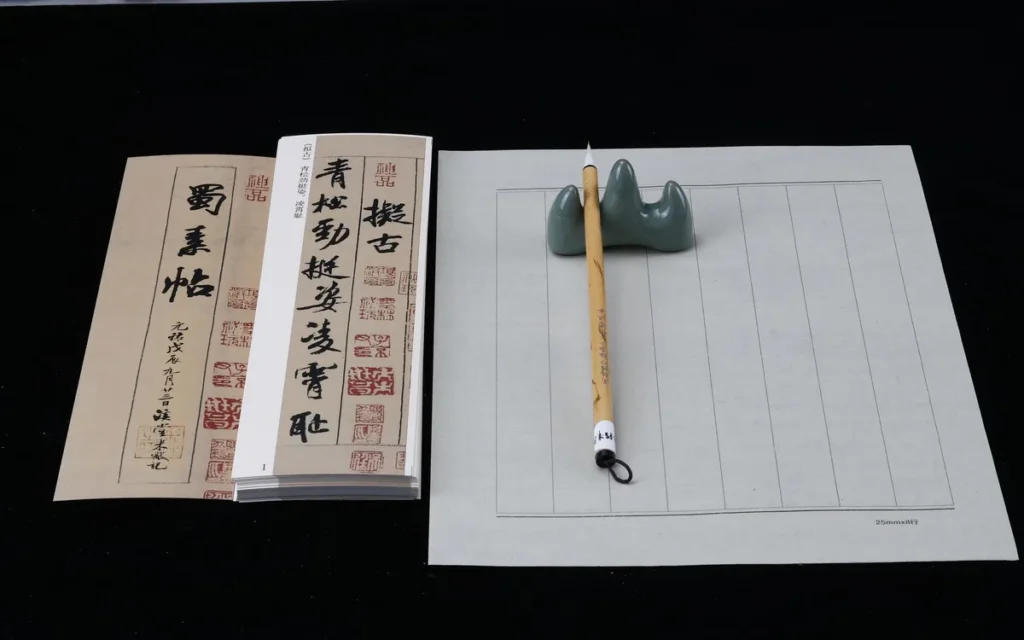 蜀素帖
元祐戊辰九月廿三日溪堂米黻記
擬古
青松勁挺姿凌霄耻
《拟古》 青松劲挺姿,凌霄耻
1
25mmx8行